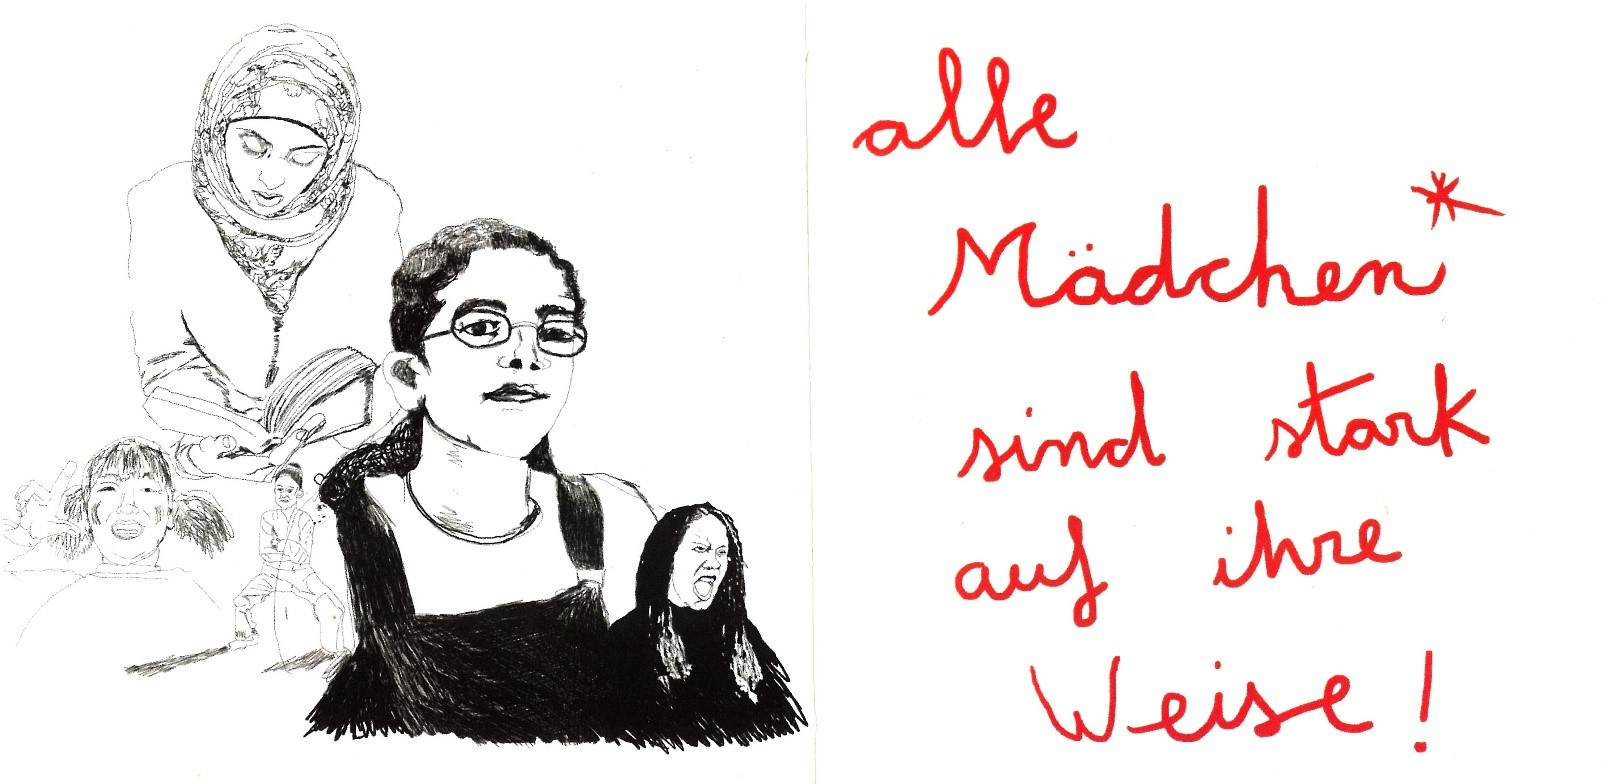 alle
Mädchen*
sind stark
auf ihre
Weise!